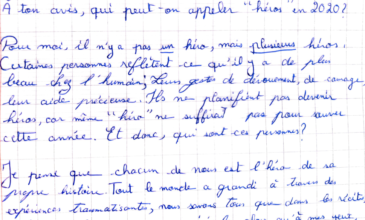 À ton avis, qui peut-on appeler "héros" en 2020?
Pour moi, il n'y a pas un héro, mais plusieurs héros.
Certaines personnes reflètent ce qu'il y a de plus
beau chez l'humain; Leurs gestes de dévouement, de courage,
leur aide précieuse. Ils ne planifient pas devenir
héros, car même "héro" ne suffirait pas pour sauver
cette année. Et donc, qui sont ces personnes?
Je pense que chacun de nous est l'héro de sa
propre histoire. Tout le monde a grandi à travers des
expériences traumatisantes, nous savons tous que dans les récits,
à mes yeux,